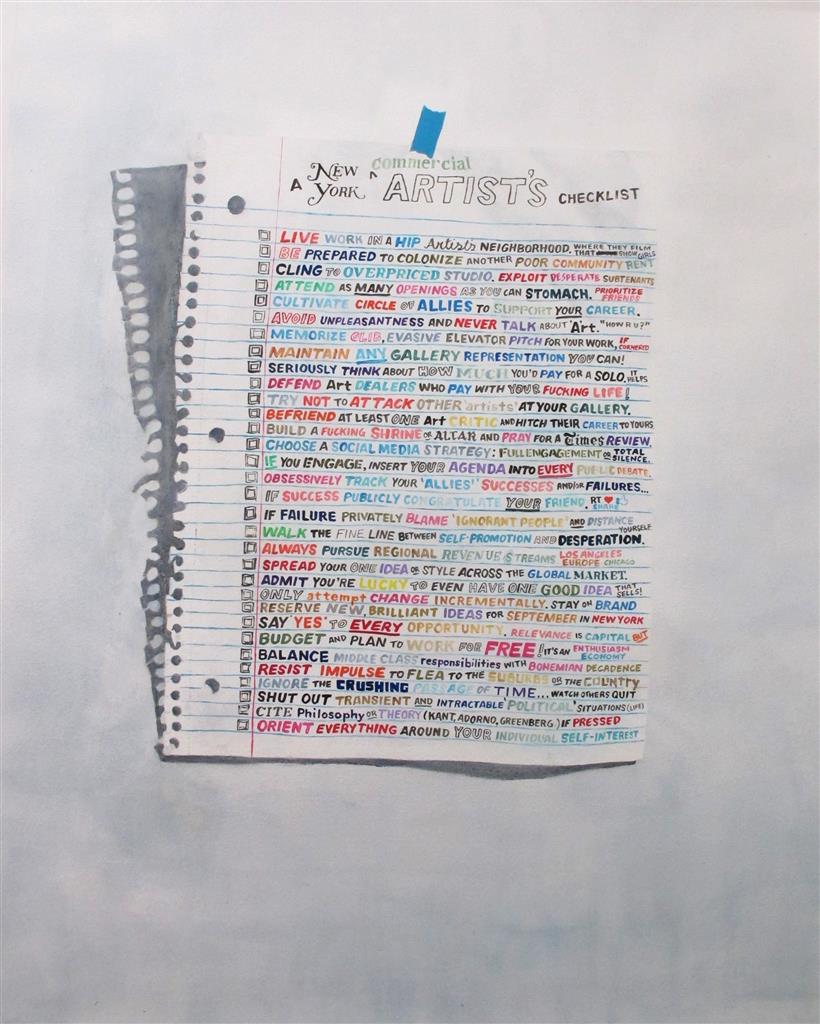 A NEW YORK ^ commercial ARTIST'S CHECKLIST
LIVE WORK IN A HIP Artists NEIGHBORHOOD. WHERE THEY FILM THAT SHOW GIRLS
BE PREPARED TO COLONIZE ANOTHER POOR COMMUNITY RENT
CLING TO OVERPRICED STUDIO. EXPLOIT DESPERATE SUBTENANTS
ATTEND AS MANY OPENINGS AS YOU CAN STOMACH. PRIORITIZE FRIENDS
CULTIVATE CIRCLE OF ALLIES TO SUPPORT YOUR CAREER.
AVOID UNPLEASANTNESS AND NEVER TALK ABOUT 'Art.' "HOW R U?"
MEMORIZE GLIB, EVASIVE ELEVATOR PITCH FOR YOUR WORK, IF CORNERED
MAINTAIN ANY GALLERY REPRESENTATION YOU CAN!
SERIOUSLY THINK ABOUT HOW MUCH YOU'D PAY FOR A SOLO. IT HELPS
DEFEND Art DEALERS WHO PAY WITH YOUR FUCKING LIFE!
TRY NOT TO ATTACK OTHER 'artists' AT YOUR GALLERY.
BEFRIEND AT LEAST ONE Art CRITIC AND HITCH THEIR CAREER TO YOURS
BUILD A FUCKING SHRINE OR ALTAR AND PRAY FOR A Times REVIEW.
CHOOSE A SOCIAL MEDIA STRATEGY: FULL ENGAGEMENT OR TOTAL SILENCE.
IF YOU ENGAGE, INSERT YOUR AGENDA INTO EVERY PUBLIC DEBATE.
OBSESSIVELY TRACK YOUR "ALLIES'" SUCCESSES AND/OR FAILURES...
IF SUCCESS PUBLICLY CONGRATULATE YOUR FRIEND. RT ♥ SHARE
IF FAILURE PRIVATELY BLAME 'IGNORANT PEOPLE' AND DISTANCE YOURSELF
WALK THE FINE LINE BETWEEN SELF-PROMOTION AND DESPERATION.
ALWAYS PURSUE REGIONAL REVENUE STREAMS LOS ANGELES EUROPE CHICAGO
SPREAD YOUR ONE IDEA OR STYLE ACROSS THE GLOBAL MARKET.
ADMIT YOU'RE LUCKY TO EVEN HAVE ONE GOOD IDEA THAT SELLS!
ONLY attempt CHANGE INCREMENTALLY. STAY ON BRAND
RESERVE NEW, BRILLIANT IDEAS FOR SEPTEMBER IN NEW YORK
SAY 'YES' TO EVERY OPPORTUNITY. RELEVANCE IS CAPITAL BUT
BUDGET AND PLAN TO WORK FOR FREE! IT'S AN ENTHUSIASM ECONOMY
BALANCE MIDDLE CLASS responsibilities WITH BOHEMIAN DECADENCE
RESIST IMPULSE TO FLEA TO THE SUBURBS OR THE COUNTRY
IGNORE THE CRUSHING PASSAGE OF TIME... WATCH OTHERS QUIT
SHUT OUT TRANSIENT AND INTRACTABLE 'POLITICAL' SITUATIONS (LIFE)
CITE Philosophy OR THEORY (KANT, ADORNO, GREENBERG.) IF PRESSED
ORIENT EVERYTHING AROUND YOUR INDIVIDUAL SELF-INTEREST